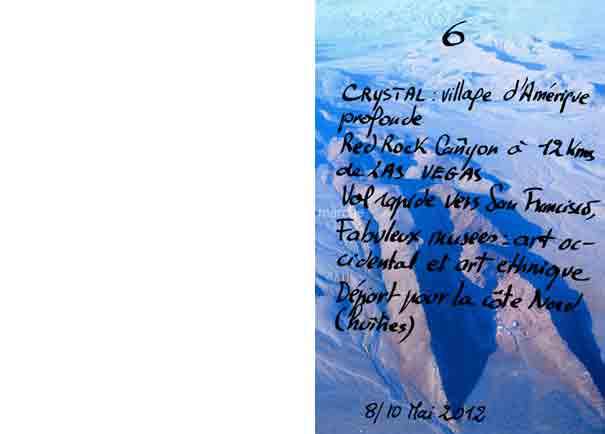 6
CRYSTAL : village d'Amérique
profonde
Red Rock Cañyon à 12 kms
de LAS VEGAS
Vol rapide vers San Francisco,
Fabuleux musées : art oc-
cidental et art ethnique
Départ pour la côte Nord
(huîtres)
8/10 Mai 2012